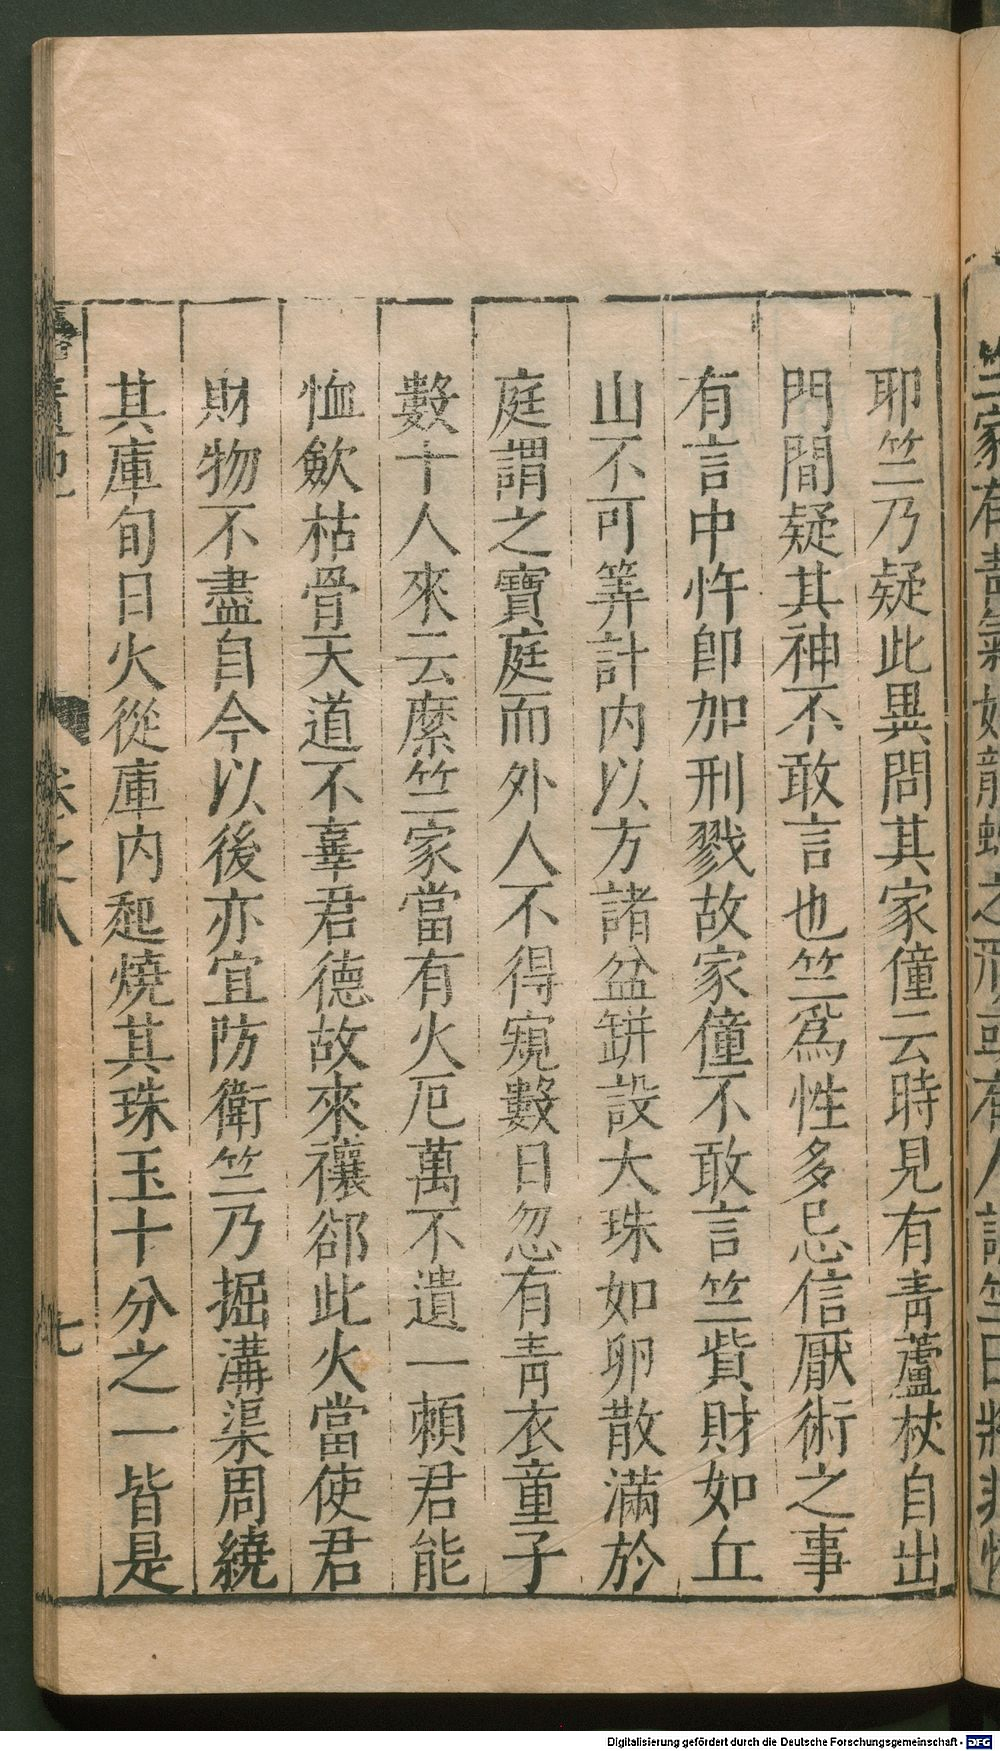 耶竺乃疑此異問其家僮云時見有青蘆杖自出
門間疑其神不敢言也竺爲性多忌信厭術之事
有言中忤卽加刑戮故家僮不敢言竺貲財如丘
山不可筭計内以方諸盆缾設大珠如卵散滿於
庭謂之寶庭而外人不得窺數日忽有青衣童子
數十人來云縻竺家當有火厄萬不遺一賴君能
恤歛枯骨天道不辜君德故來禳郤此火當使君
財物不盡自今以後亦宜防衛竺乃掘溝渠周繞
其庫旬日火從庫内起燒其珠玉十分之一皆是
卷之八
七
Digitalisierung gefördert durch die Deutsche Forschungsgemeinschaft - DFG